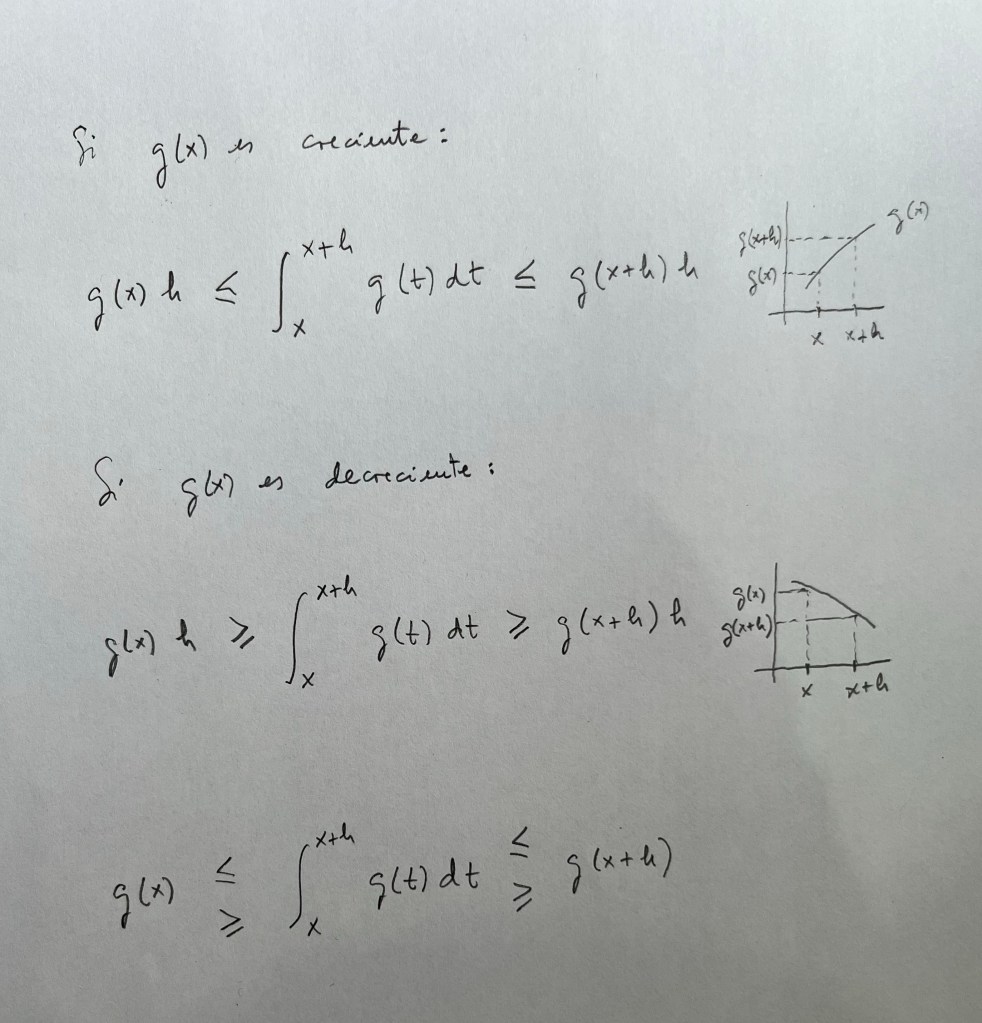 Si g(x) es creciente:
g(x) h ≤ ∫ₓˣ⁺ʰ g(t) dt ≤ g(x+h) h
g(x)
g(x+h)
g(x)
x x+h
Si g(x) es decreciente:
g(x) h ≥ ∫ₓˣ⁺ʰ g(t) dt ≥ g(x+h) h
g(x)
g(x+h)
x x+h
g(x) ≤ ≥ ∫ₓˣ⁺ʰ g(t) dt ≤ ≥ g(x+h)